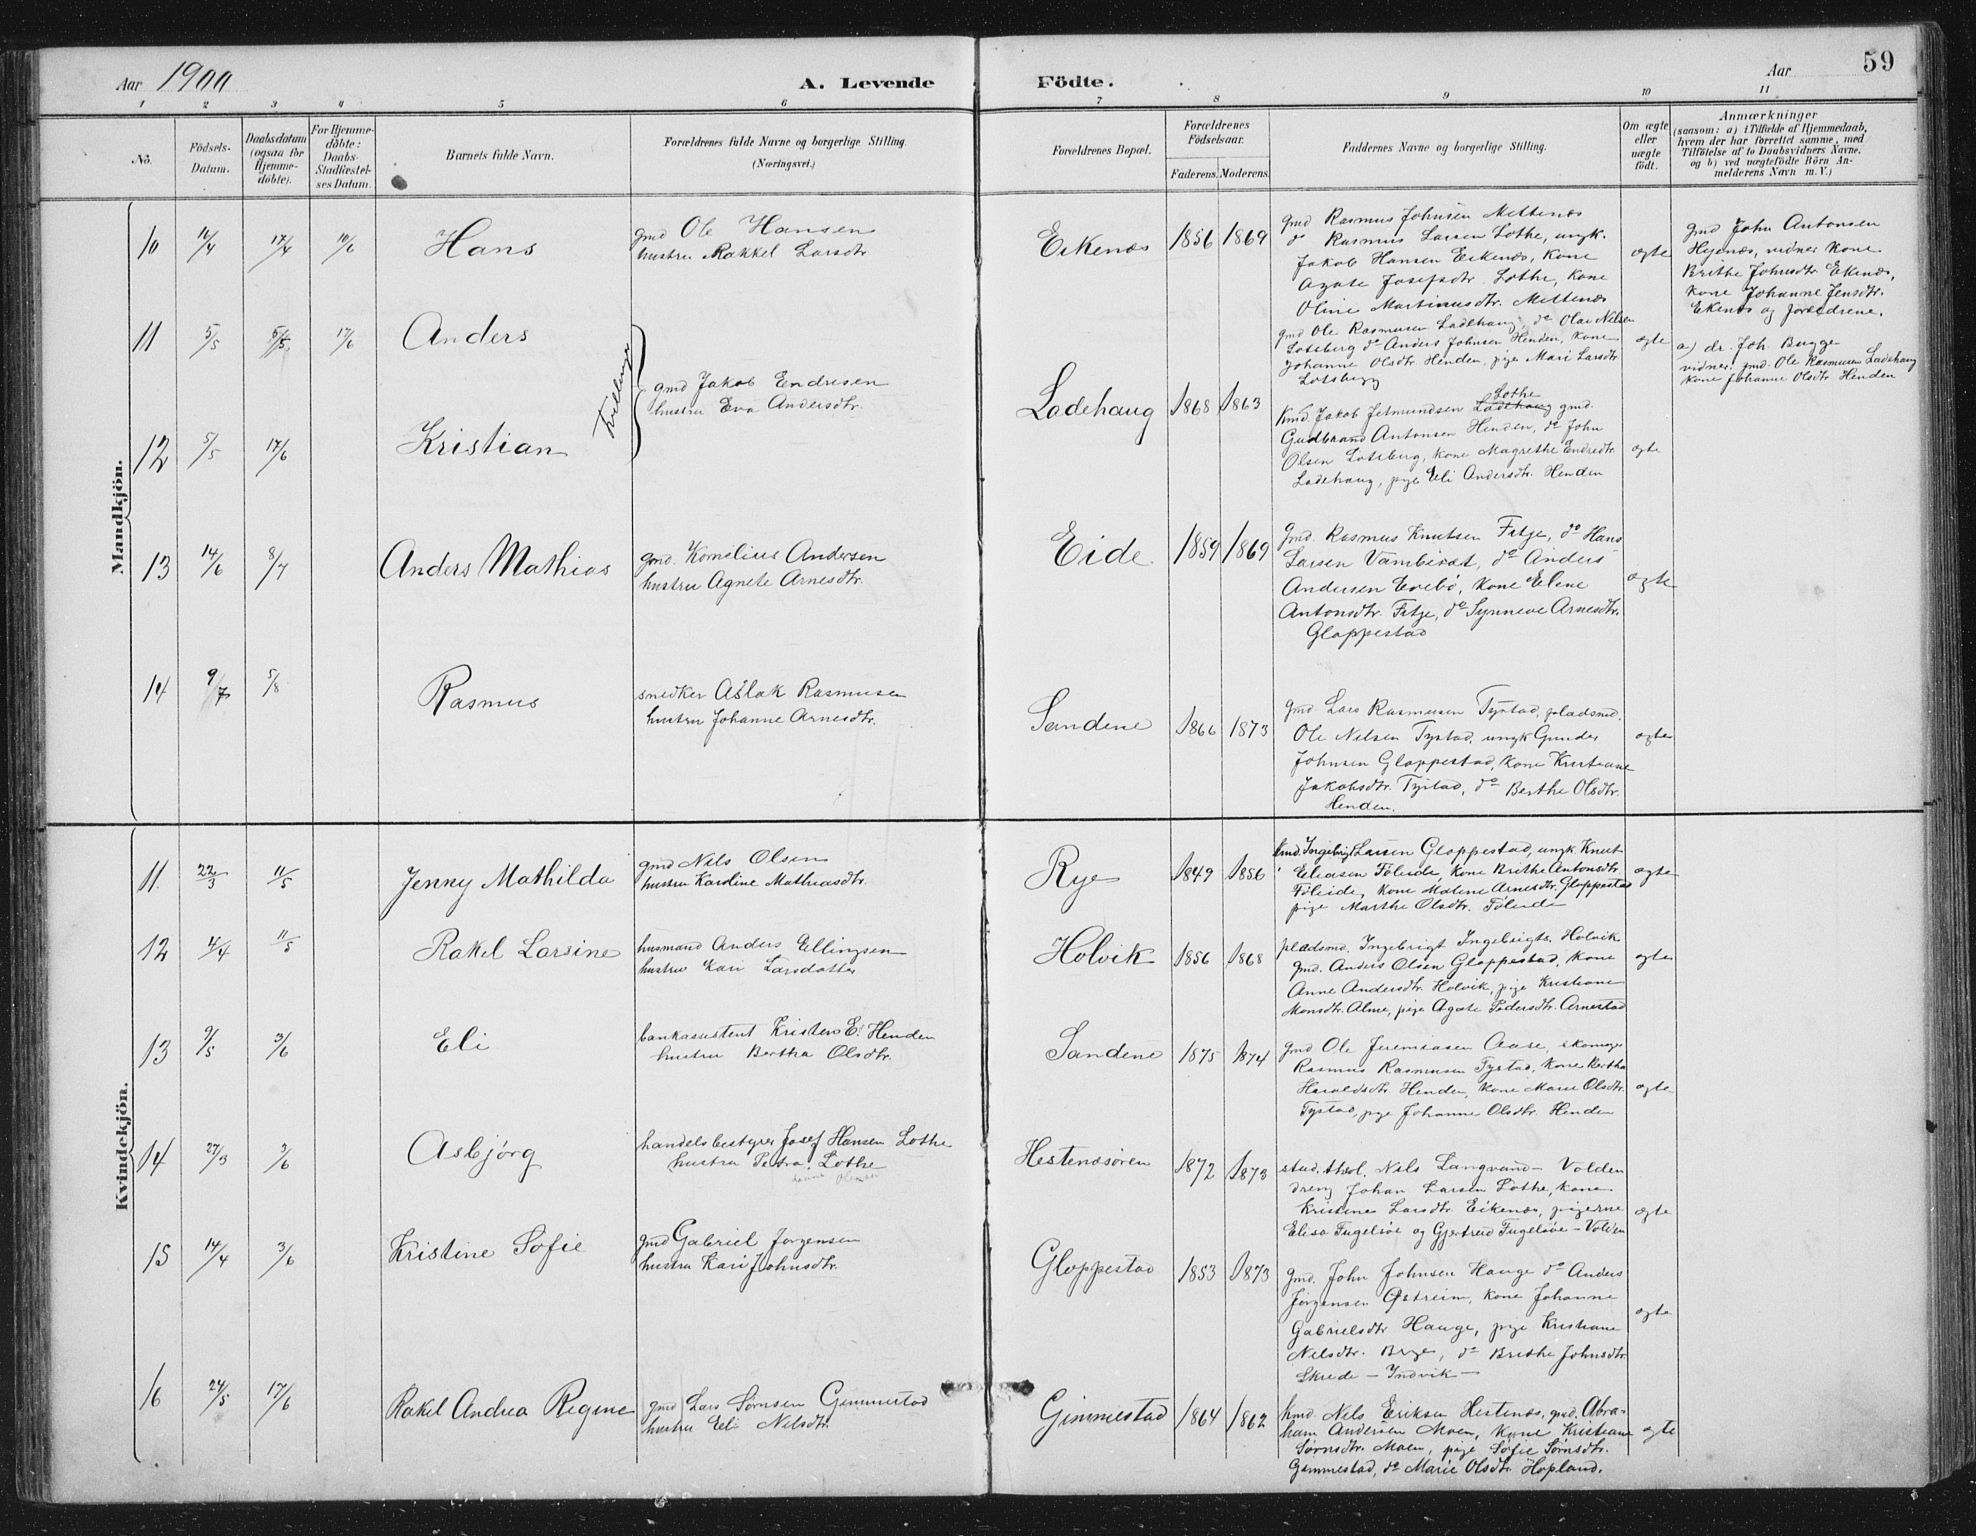 Aar 1900
A. Levende Födte.
Aar 59
1 2 3 4 5 6 7 8 9 10 11
No.
Födsels-Datum.
Daabsdatum (ogsaa for Hjemme-döbte).
For Hjemme-döbte: Daabs-Stadfæstel-ses Datum.
Barnets fulde Navn.
Forældrenes fulde Navne og borgerlige Stilling. (Næringsvei.)
Forældrenes Bopæl.
Forældrenes Födselsaar.
Faderens. Moderens.
Faddernes Navne og borgerlige Stilling.
Om ægte eller uægte födt.
Anmærkninger
(saasom: a) i Tilfælde af Hjemmedaab, hvem der har forrettet samme, med Tilföielse af to Daabsvidners Navne, og b) ved uægtefödte Börn An-melderens Navn m. V.)
Mandkjön.
10 16/4 17/4 10/6 Hans
gmd Ole Hansen
hustru Rakkel Larsdtr
Eikenæs 1856 1869
gmd Rasmus Johnsen Mettenæs
do Rasmus Larsen Lothe, ungk.
Jakob Hansen Eikenæs, kone
Agate Josefsdtr. Lothe, kone
Oline Martinusdtr. Mettenæs
ægte
gmd John Antonsen
Hyenæs, vidner kone
Brithe Johnsdtr Ekenæs,
kone Johanne Jensdtr.
Ekenæs og forældrene.
11 5/5 5/5 17/6 Anders
Tvillinger
gmd Jakob Endresen
hustru Eva Andersdtr.
Ladehaug 1868 1863
gmd Ole Rasmusen Ladehaug, do Olai Nilsen
Lotsberg do Anders Johnsen Henden, kone
Johanne Olsdtr Henden, pige Mari Larsdtr
Lotsberg
ægte
a) dr. Joh. Bugge
vidner: gmd. Ole Rasmusen Ladehaug
kone Johanne Olsdtr Henden
12 5/5 17/6 Kristian
Lothe
Kmd. Jakob Jetmundsen Ladehaug gmd.
Gudbrand Antonsen Henden, do John
Olsen Lotsberg, kone Magrethe Endredtr
Ladehaug, pige Eli Andersdtr. Henden
ægte
13 14/6 8/7 Anders Mathias
gmd. Kornelius Andersen
hustru Agnete Arnesdtr.
Eide 1859 1869
gmd. Rasmus Knutsen Fitje, do Hans
Larsen Vambeset, do Anders
Andersen Evebö, kone Elene
Antonsdtr. Fitje, do Synneve Arnesdtr.
Gloppestad
ægte
14 9/7 5/8 Rasmus
snedker Aslak Rasmusen
hustru Johanne Arnesdtr.
Sandene 1866 1873
gmd Lars Rasmusen Tystad, pladsmd.
Ole Nilsen Tystad, ungk Gunder
Johnsen Gloppestad, kone Kristiane
Jakobsdtr. Tystad, do Berthe Olsdtr.
Henden.
ægte
Kvindekjön.
11. 22/3 11/5 Jenny Mathilda
gmd Nils Olsen
hustru Karoline Mathiasdtr.
Rye 1849 1856
kmd. Ingebrigt Larsen Gloppestad, ungk. Knut
Eliasen Föleide, kone Brithe Antonsdtr
Föleide, kone Malene Arnesdtr. Gloppestad
pige Marthe Olsdtr. Föleide
ægte
12 4/4 11/5 Rakel Larsine
husmand Anders Ellingsen
hustru Kari Larsdatter
Holvik 1856 1868
pladsmd. Ingebrigt Ingebrigts. Holvik
gmd. Anders Olsen Gloppestad, kone
Anne Andersdtr. Holvik, pige Kristiane
Monsdtr. Alme, pige Agate Pedersdtr. Arnestad
ægte
13 9/5 3/6 Eli
bankassistent Kristen E. Henden
hustru Bertha Olsdtr.
Sandene 1875 1874
gmd Ole Jeremiasen Aase, skomager
Rasmus Rasmusen Tystad, kone Bertha
Haraldsdtr. Henden, kone Marie Olsdtr.
Tystad, pige Johanne Olsdtr. Henden
ægte
14 27/3 3/6 Asbjørg
handelsbestyrer Josef Hansen Lothe
hustru Petra Lothe
Hestenæsören 1872 1873
stud. theol. Nils Langvand – Volden
dreng Johan Larsen Lothe, kone
Kristine Larsdtr. Eikenæs, pigerne
Elisa Fugelsöe og Gjertrud Fugelsöe – Volden
ægte
15 14/4 3/6 Kristine Sofie
gmd Gabriel Jörgensen
hustru Kari Johnsdtr.
Gloppestad 1853 1873
gmd. John Johnsen Hauge do Anders
Jörgensen Østreim, kone Johanne
Gabrielsdtr Hauge, pige Kristiane
Nilsdtr. Rye, do Brithe Johnsdtr.
Skrede – Indvik –
ægte
16 24/5 17/6 Rakel Andrea Regine
gmd Lars Sörnsen Gimmestad
hustru Eli Nilsdtr.
Gimmestad 1864 1862
kmd. Nils Eriksen Hestenæs, gmd. Abra-
ham Andersen Moen, kone Kristiane
Sörnsdtr. Moen, pige Sofie Sörnsdtr.
Gimmestad, do Marie Olsdtr. Hopland.
ægte